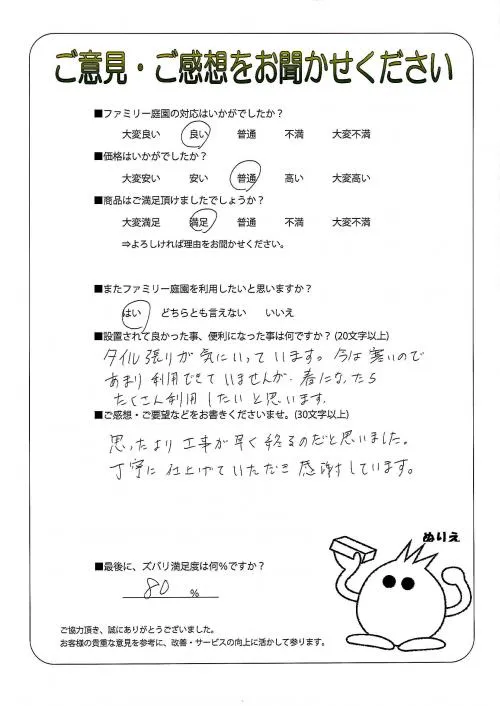 ご意見・ご感想をお聞かせください
■ファミリー庭園の対応はいかがでしたか？
大変良い 良い 普通 不満 大変不満
■価格はいかがでしたか？
大変安い 安い 普通 高い 大変高い
■商品はご満足頂けましたでしょうか？
大変満足 満足 普通 不満 大変不満
⇒よろしければ理由をお聞かせください。
■またファミリー庭園を利用したいと思いますか？
はい どちらとも言えない いいえ
■設置されて良かった事、便利になった事は何ですか？(20文字以上)
タイル張りが気にいっています。今は寒いので
あまり利用できていませんが、春になったら
たくさん利用したいと思います。
■ご感想・ご要望などをお書きくださいませ。(30文字以上)
思ったより工事が早く終るのだと思いました。
丁寧に仕上げていただき感謝しています。
ぬりえ
■最後に、ズバリ満足度は何%ですか？
80 %
ご協力頂き、誠にありがとうございました。
お客様の貴重な意見を参考に、改善・サービスの向上に活かして参ります。